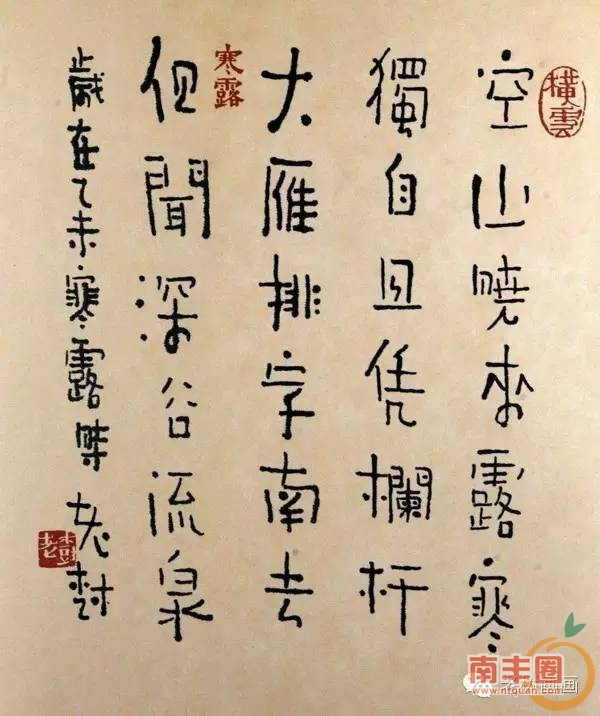 橫雲
空山曉來露寒
獨自且凭欄杆
大雁排字南去
寒露
但聞深谷流泉
歲在乙未寒露時 老樹
老樹
南丰圈
www.nfquan.com